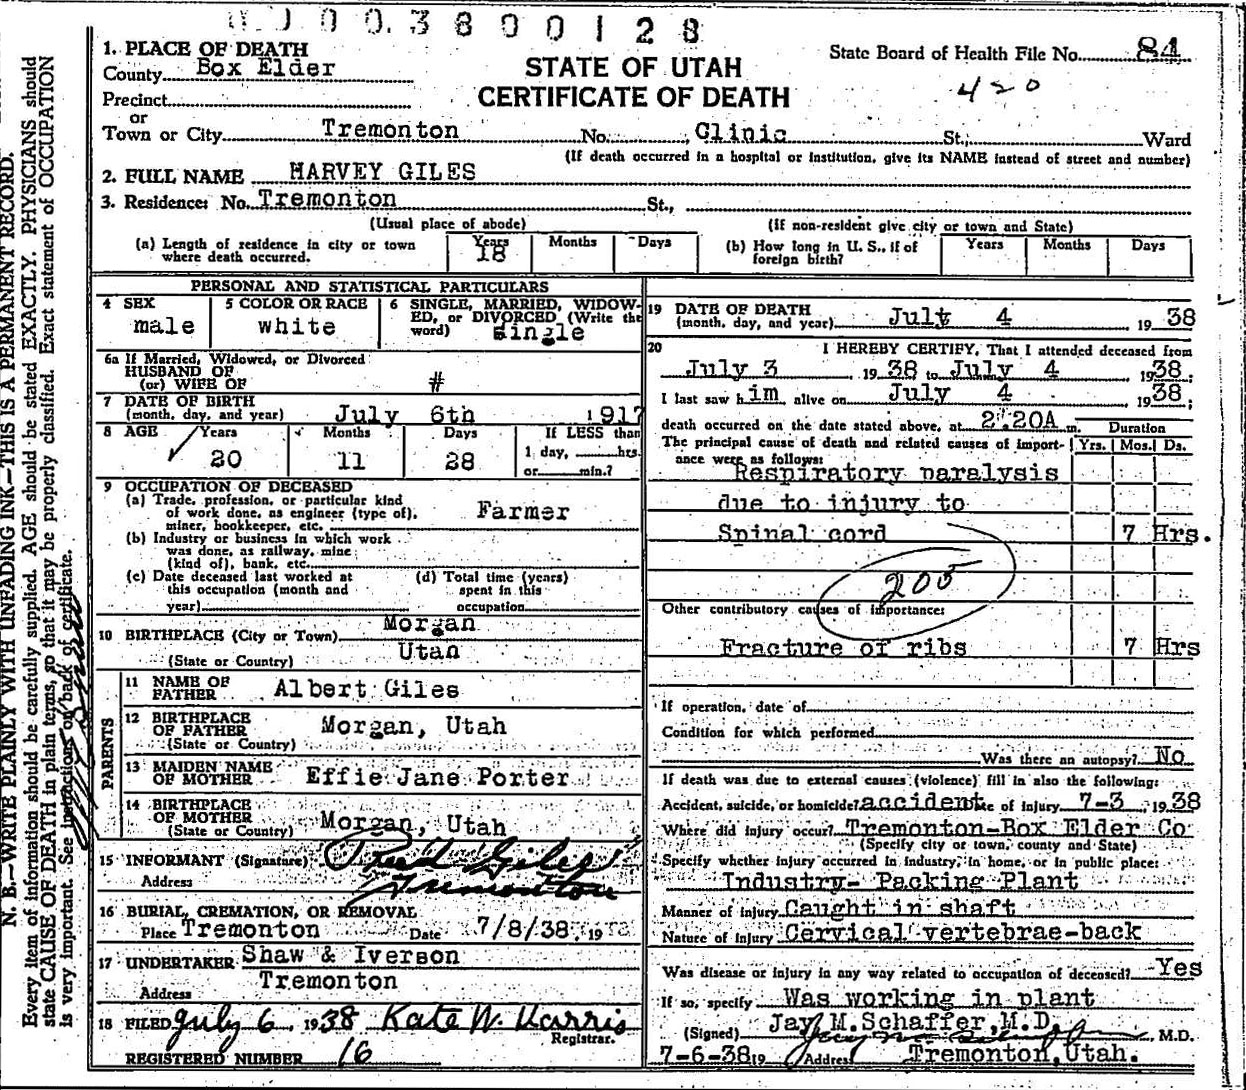 0 0 3 8 0 0 1 2 8
1. PLACE OF DEATH
County Box Elder
STATE OF UTAH
State Board of Health File No. 84
Precinct
CERTIFICATE OF DEATH
420
or
Town or City Tremonton No. Clinic St., Ward
(If death occurred in a hospital or institution, give its NAME instead of street and number)
2. FULL NAME HARVEY GILES
3. Residence: No. Tremonton St.,
(Usual place of abode) (If non-resident give city or town and State)
(a) Length of residence in city or town where death occurred. Years 18 Months Days
(b) How long in U. S., if of foreign birth? Years Months Days
PERSONAL AND STATISTICAL PARTICULARS
4 SEX male
5 COLOR OR RACE white
6 SINGLE, MARRIED, WIDOW-
ED, or DIVORCED (Write the
word) single
6a If Married, Widowed, or Divorced
HUSBAND OF
(or) WIFE OF #
7 DATE OF BIRTH
(month, day, and year) July 6th 1917
8 AGE Years 20 Months 11 Days 28
If LESS than
1 day, hrs.
or min.?
9 OCCUPATION OF DECEASED
(a) Trade, profession, or particular kind
of work done, as engineer (type of),
miner, bookkeeper, etc. Farmer
(b) Industry or business in which work
was done, as railway, mine
(kind of), bank, etc.
(c) Date deceased last worked at
this occupation (month and
year)
(d) Total time (years)
spent in this
occupation
10 BIRTHPLACE (City or Town) Morgan
(State or Country) Utah
PARENTS
11 NAME OF
FATHER Albert Giles
12 BIRTHPLACE
OF FATHER Morgan, Utah
(State or Country)
13 MAIDEN NAME
OF MOTHER Effie Jane Porter
14 BIRTHPLACE
OF MOTHER
(State or Country) Morgan, Utah
15 INFORMANT (Signature) Reed Giles
Address Tremonton
16 BURIAL, CREMATION, OR REMOVAL
Place Tremonton Date 7/8/38, 19
17 UNDERTAKER Shaw & Iverson
Address Tremonton
18 FILED July 6 1938 Kate W. Harris
Registrar.
REGISTERED NUMBER 16
19 DATE OF DEATH
(month, day, and year) Jult 4 1938
20 I HEREBY CERTIFY, That I attended deceased from
July 3, 1938 to July 4 1938;
I last saw him alive on July 4 1938;
death occurred on the date stated above, at 2:20A m. Duration
The principal cause of death and related causes of import-
ance were as follows: Yrs. Mos. Ds.
Respiratory paralysis
due to injury to
Spinal cord 7 Hrs.
205
Other contributory causes of importance:
Fracture of ribs 7 Hrs
If operation, date of
Condition for which performed
Was there an autopsy? No
If death was due to external causes (violence) fill in also the following:
Accident, suicide, or homicide? accident Date of injury 7-3 1938
Where did injury occur? Tremonton-Box Elder Co
(Specify city or town, county and State)
Specify whether injury occurred in industry, in home, or in public place:
Industry- Packing Plant
Manner of injury Caught in shaft
Nature of injury Cervical vertebrae-back
Was disease or injury in any way related to occupation of deceased? Yes
If so, specify Was working in plant
(Signed) Jay M. Schaffer, M.D. M.D.
7-6-38 19 Address Tremonton, Utah.
N. B.—WRITE PLAINLY WITH UNFADING INK—THIS IS A PERMANENT RECORD.
Every item of information should be carefully supplied. AGE should be stated EXACTLY. PHYSICIANS should
state CAUSE OF DEATH in plain terms, so that it may be properly classified. Exact statement of OCCUPATION
is very important. See instructions on back of certificate.